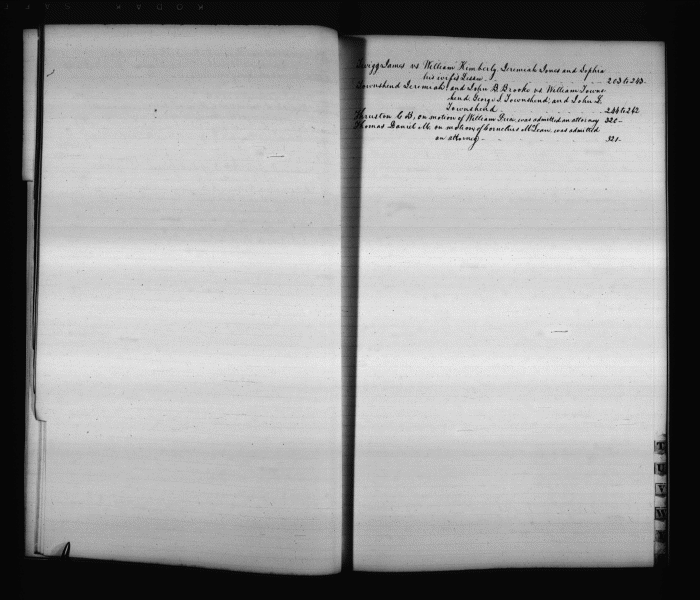 Twigg James vs William Kimberly Jeremiah Jones and Sophia
his wife's Lessee 203 to 243.
Townshend Jeremiah, and John B Brooke vs William Towns-
hend, George S Townshend, and John L
Townshend 244 to 262
Thruston C B, on motion of William was admitted an attorney 320-
Thomas Daniel M. on motion of Cornelius McLean was admitted
an attorney - 321-
T
U
V
W